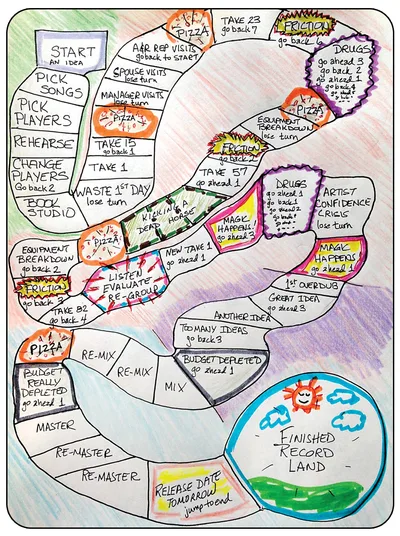 START
AN IDEA
PICK
SONGS
PICK
PLAYERS
REHEARSE
CHANGE
PLAYERS
Go back 2
BOOK
STUDIO
WASTE 1ST DAY
lose turn
TAKE 1
TAKE 15
go back 1
PIZZA
MANAGER VISITS
lose turn
SPOUSE VISITS
lose turn
A&R REP VISITS
go back to start
PIZZA
TAKE 23
go back 7
FRICTION
go back 6
DRUGS
go ahead 3
go back 2
go ahead 1
go back 4
PIZZA
EQUIPMENT
BREAKDOWN
lose turn
FRICTION
go back 2
TAKE 57
go ahead 1
KICKING A
DEAD HORSE
PIZZA
EQUIPMENT
BREAKDOWN
go back 2
FRICTION
go back 3
TAKE 82
go back 4
LISTEN
EVALUATE
RE-GROUP
NEW TAKE 1
go ahead 1
MAGIC
HAPPENS!
go ahead 3
DRUGS
go ahead 1
go back 1
go ahead 2
go back
ARTIST
CONFIDENCE
CRISIS
lose turn
MAGIC
HAPPENS
go ahead 1
1ST OVERDUB
GREAT IDEA
go ahead 3
ANOTHER IDEA
TOO MANY IDEAS
go back 3
BUDGET DEPLETED
go ahead 1
MIX
RE-MIX
RE-MIX
PIZZA
BUDGET
REALLY
DEPLETED
go ahead 1
MASTER
RE-MASTER
RE-MASTER
RELEASE DATE
TOMORROW
jump to end
FINISHED
RECORD
LAND